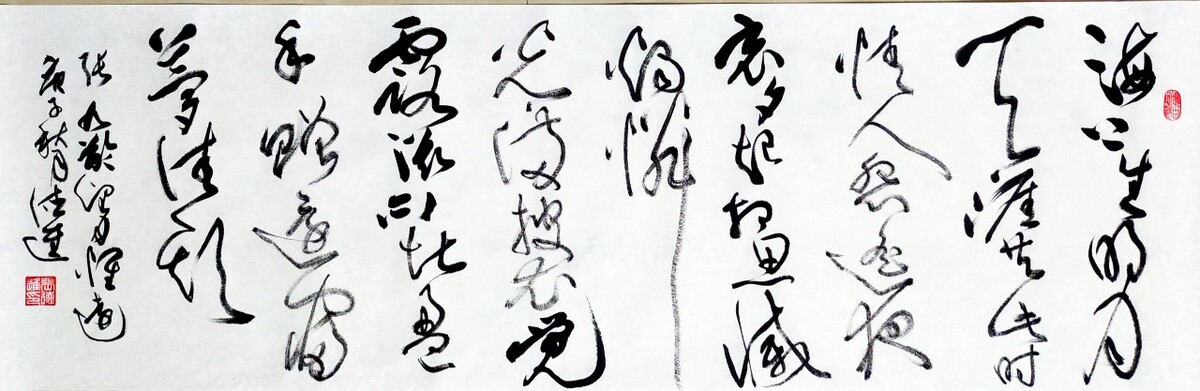 海上生明月
天涯共此时
情人怨遥夜
竟夕起相思滅
燭憐
光满披衣覺
露滋不堪盈
手赠還寝
夢佳期
张九龄望月懷遠
庚子秋月